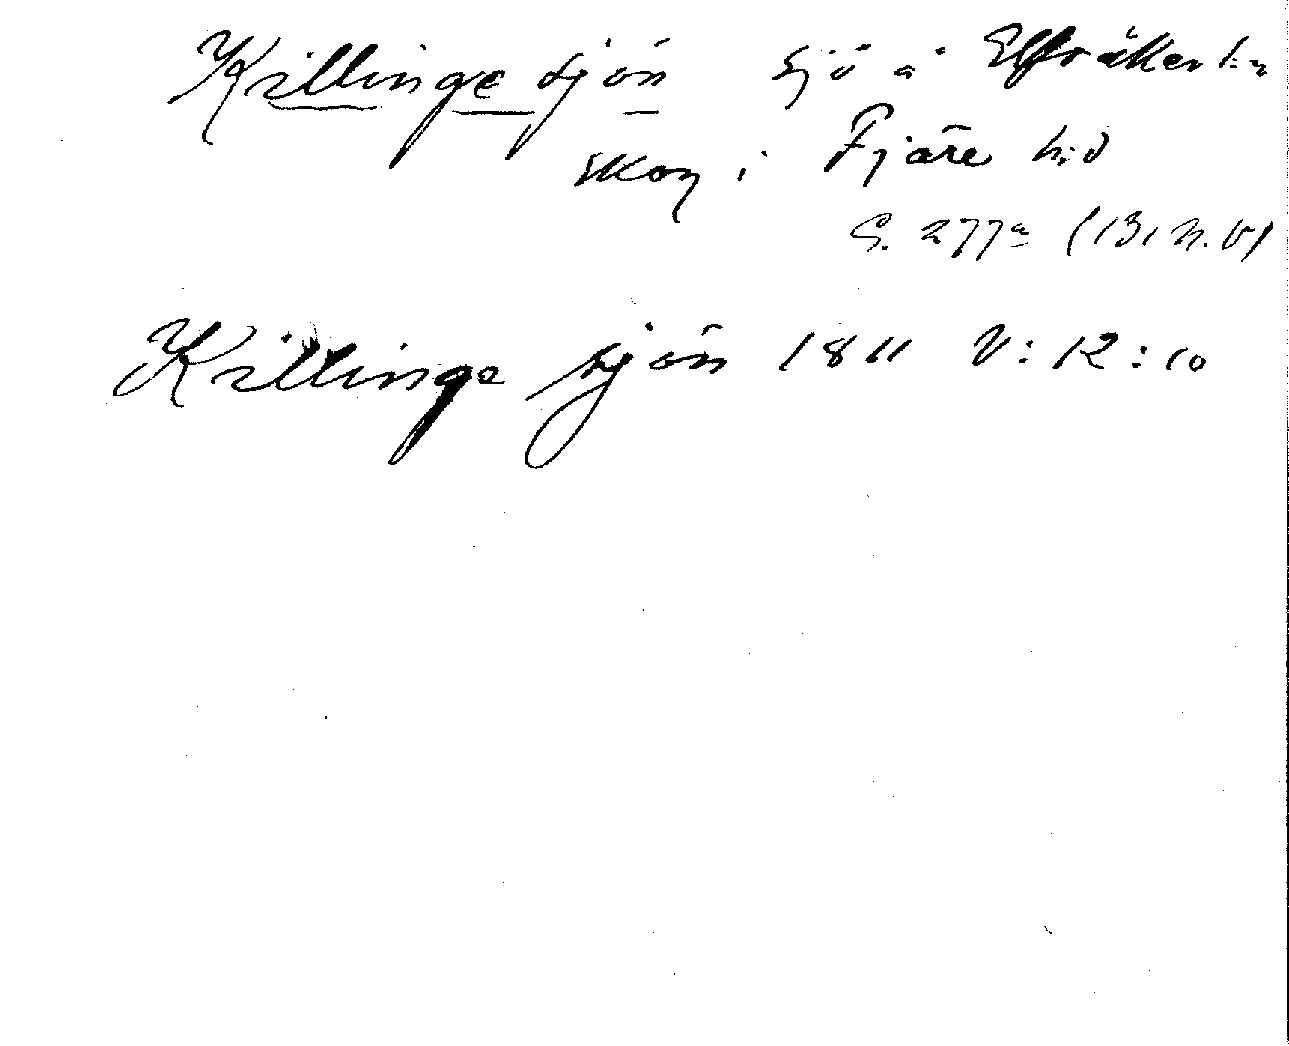 Killinge sjön sjö å Elfråker
skog i Fjäre hd
S. 277a (131 N.V)
Killinge sjön 1811 V:12:10